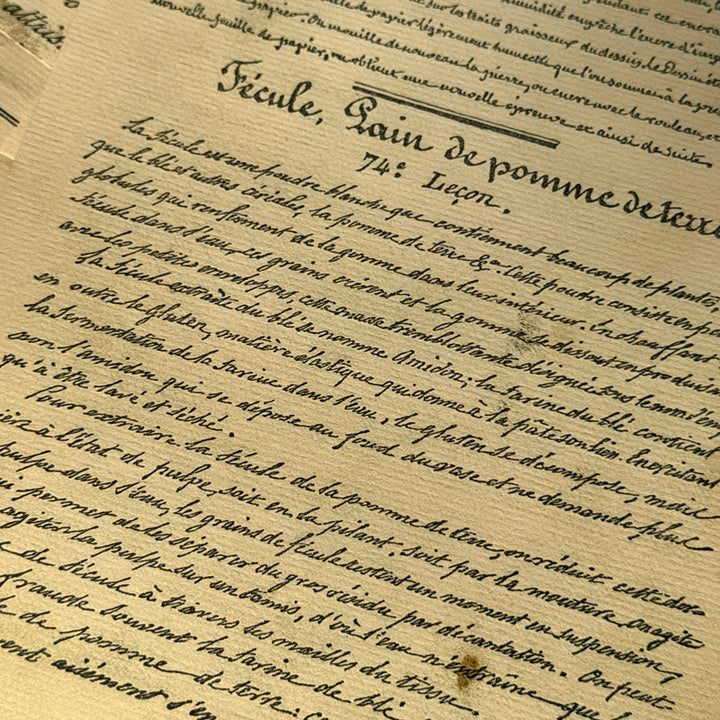 attris.
humidité empêche l'encre d'imp
sur les traits graisseux du dessin. Dessin
de papier légèrement humecté que l'on soumet à la pre
On mouille de nouveau la pierre, on encre avec le rouleau, et
nouvelle feuille de papier, on obtient une nouvelle épreuve et ainsi de suite.
Fécule, Pain de pomme de terre
74e Leçon.
La fécule est une poudre blanche que contiennent beaucoup de plantes
que le blé et autres céréales, la pomme de terre &a. Cette poudre consiste en p
globules qui renferment de la gomme dans leur intérieur. En chauffant
fécule dans l'eau, ces grains crèvent et la gomme se dissout en produisa
avec les petites enveloppes, cette masse tremblottante désignée sous le nom d'em
La fécule extraite du blé se nomme Amidon; la farine du blé contient
en outre le Gluten, matière élastique qui donne à la pâte son lien. En excitant
la fermentation de la farine dans l'eau, le gluten se décompose, mais
non l'amidon qui se dépose au fond du vase et ne demande plus
qu'à être lavé et séché.
Pour extraire la fécule de la pomme de terre, on réduit cette der
à l'état de pulpe, soit en la pilant, soit par la mouture. On agite
pulpe dans l'eau, les grains de fécule restent un moment en suspension,
qui permet de les séparer du gros résidu par décantation. On peut
agiter la pulpe sur un tamis, d'où l'eau n'entraîne que
de fécule à travers les mailles du tissu.
fraude souvent la farine de blé
de pomme de terre: c
aisément s'en